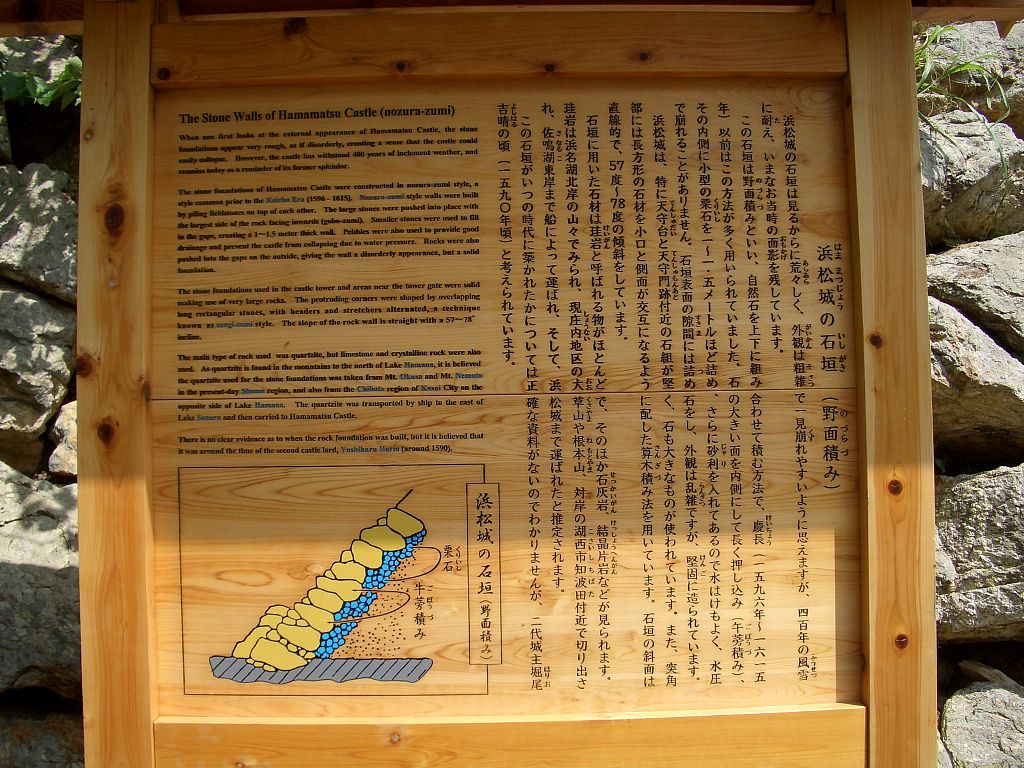 The Stone Walls of Hamamatsu Castle (nozura-zumi)
When one first looks at the external appearance of Hamamatsu Castle, the stone
foundations appear very rough, as if disorderly, creating a sense that the castle could
easily collapse. However, the castle has withstood 400 years of inclement weather, and
remains today as a reminder of its former splendor.
The stone foundations of Hamamatsu Castle were constructed in nozura-zumi style, a
style common prior to the Keicho Era (1596 - 1615). Nozura-zumi style walls were built
by piling fieldstones on top of each other. The large stones were pushed into place with
the largest side of the rock facing inwards (gobo-zumi). Smaller stones were used to fill
in the gaps, creating a 1～1.5 meter thick wall. Pebbles were also used to provide good
drainage and prevent the castle from collapsing due to water pressure. Rocks were also
pushed into the gaps on the outside, giving the wall a disorderly appearance, but a solid
foundation.
The stone foundations used in the castle tower and areas near the tower gate were solid
making use of very large rocks. The protruding corners were shaped by overlapping
long rectangular stones, with headers and stretchers alternated, a technique
known as sangi-zumi style. The slope of the rock wall is straight with a 57～78°
incline.
The main type of rock used was quartzite, but limestone and crystalline rock were also
used. As quartzite is found in the mountains to the north of Lake Hamana, it is believed
the quartzite used for the stone foundations was taken from Mt. Okusa and Mt. Nemoto
in the present-day Shonai region, and also from the Chibata region of Kosai City on the
opposite side of Lake Hamana. The quartzite was transported by ship to the east of
Lake Sanaru and then carried to Hamamatsu Castle.
There is no clear evidence as to when the rock foundation was built, but it is believed that
it was around the time of the second castle lord, Yoshiharu Horio (around 1590).
浜松城の石垣（野面積み）
浜松城の石垣は見るからに荒々しく、外観は粗雑で一見崩れやすいように思えますが、四百年の風雪
に耐え、いまなお当時の面影を残しています。
この石垣は野面積みといい、自然石を上下に組み合わせて積む方法で、慶長（一五九六年～一六一五
年）以前はこの方法が多く用いられていました。石の大きい面を内側にして長く押し込み（牛蒡積み）、
その内側に小型の栗石を一～一・五メートルほど詰め、さらに砂利を入れてあるので水はけもよく、水圧
で崩れることがありません。石垣表面の隙間には詰め石をし、外観は乱雑ですが、堅固に造られています。
浜松城は、特に天守台と天守門跡付近の石組が堅く、石も大きなものが使われています。また、突角
部には長方形の石材を小口と側面が交互になるように配した算木積み法を用いています。石垣の斜面は
直線的で、57度～78度の傾斜をしています。
石垣に用いた石材は珪岩と呼ばれる物がほとんどで、そのほか石灰岩、結晶片岩などが見られます。
珪岩は浜名湖北岸の山々でみられ、現庄内地区の大草山や根本山、対岸の湖西市知波田付近で切り出さ
れ、佐鳴湖東岸まで船によって運ばれ、そして、浜松城まで運ばれたと推定されます。
この石垣がいつの時代に築かれたかについては正確な資料がないのでわかりませんが、二代城主堀尾
吉晴の頃（一五九〇年頃）と考えられています。
浜松城の石垣（野面積み）
栗石
牛蒡積み